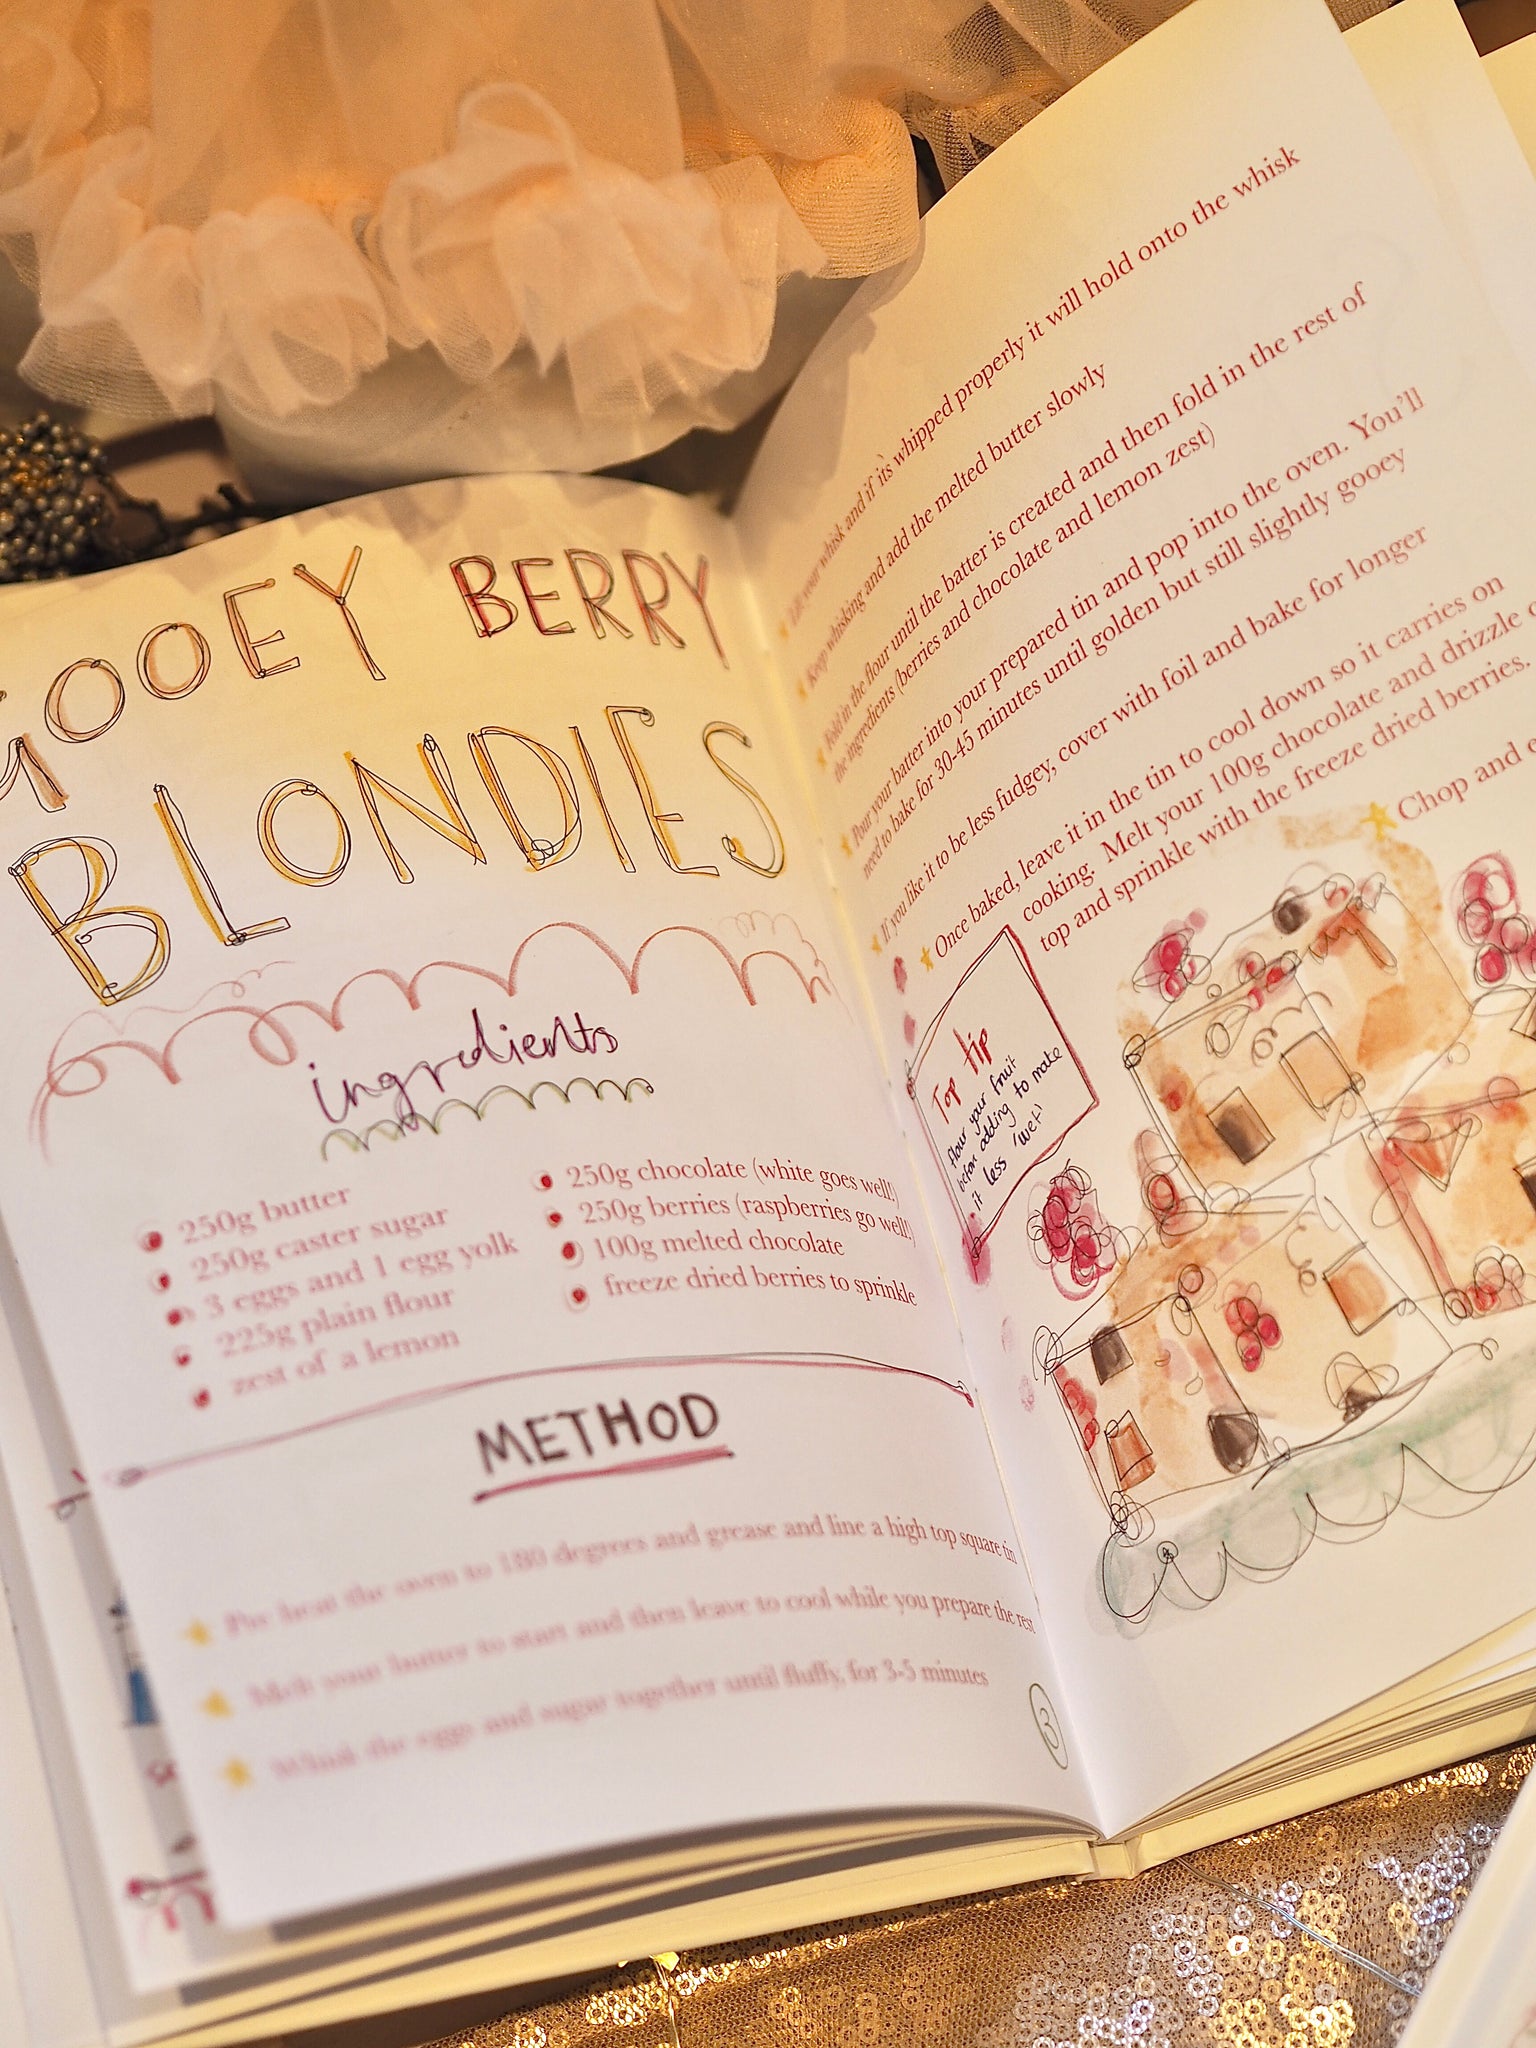 GOOEY BERRY
BLONDIES
ingredients
250g butter
250g caster sugar
3 eggs and 1 egg yolk
225g plain flour
zest of a lemon
250g chocolate (white goes well!)
250g berries (raspberries go well!)
100g melted chocolate
freeze dried berries to sprinkle
METHOD
Pre heat the oven to 180 degrees and grease and line a high top square tin
Melt your butter to start and then leave to cool while you prepare the rest
Whisk the eggs and sugar together until fluffy, for 3-5 minutes
3
Lift your whisk and if its whipped properly it will hold onto the whisk
Keep whisking and add the melted butter slowly
Fold in the flour until the batter is created and then fold in the rest of
the ingredients (berries and chocolate and lemon zest)
Pour your batter into your prepared tin and pop into the oven. You'll
need to bake for 30-45 minutes until golden but still slightly gooey
If you like it to be less fudgey, cover with foil and bake for longer
Once baked, leave it in the tin to cool down so it carries on
cooking. Melt your 100g chocolate and drizzle
top and sprinkle with the freeze dried berries.
Chop and
Top tip
flour your fruit
before adding to make
it less 'wet'